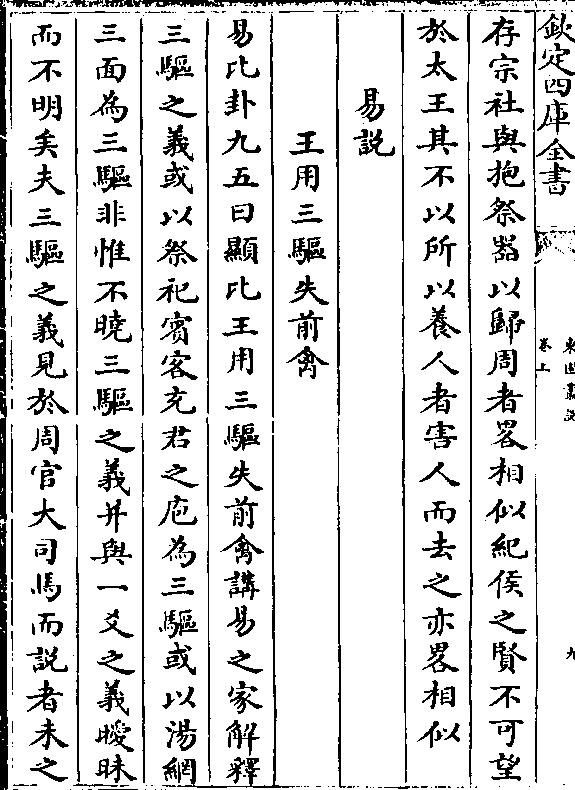 欽定四庫全書
東園叢説
卷上
九
存宗社與抱祭器以歸周者畧相似紀侯之賢不可望
於太王其不以所以養人者害人而去之亦畧相似
易説
王用三驅失前禽
易比卦九五曰顯比王用三驅失前禽講易之家解釋
三驅之義或以祭祀賓客充君之庖為三驅或以湯網
三面為三驅非惟不曉三驅之義并與一爻之義曖昧
而不明矣夫三驅之義見於周官大司馬而説者未之